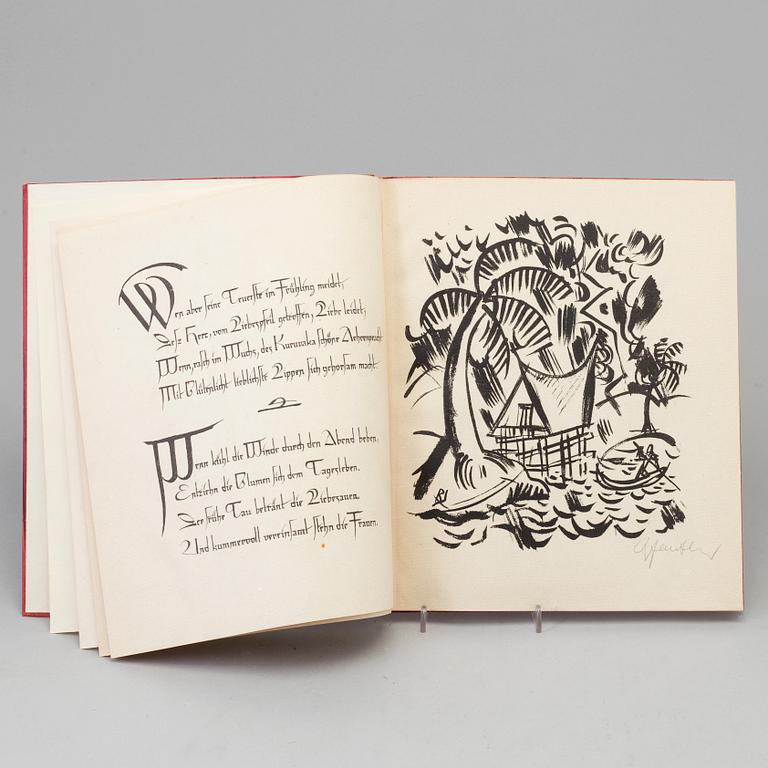 Wen aber seine Teuerste im Frühling meidet,
Des Herz, vom Liebespfeil getroffen, Liebe leidet,
Wenn, rasch im Wuchs, des Kuruvaka schöne Aehrenpracht
Mit Blütenlicht lieblichste Lippen sich gehorsam macht.
Wenn kühl die Winde durch den Abend beben,
Entziehn die Blumen sich dem Tagesleben.
Der frühe Tau betränt die Liebesauen.
Und kummervoll vereinsamt stehn die Frauen.